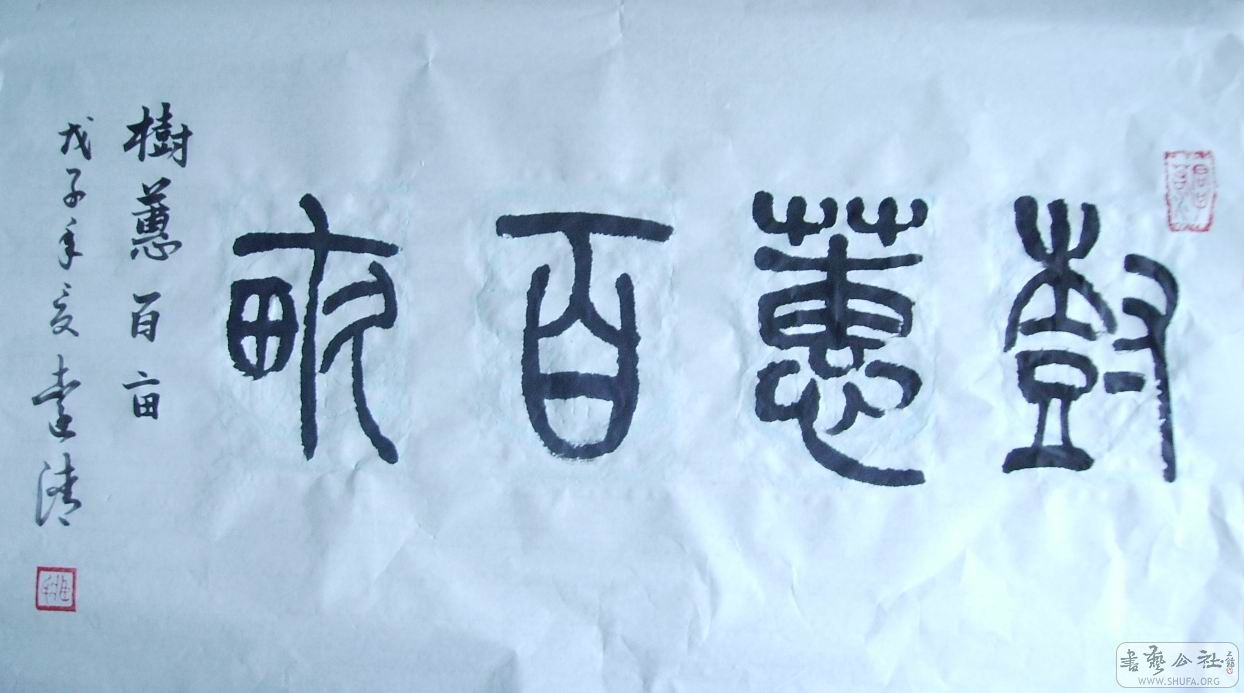 樹蕙百畝
樹蕙百亩
戊子年夏達清
書藝公社
WWW.SHUFA.ORG